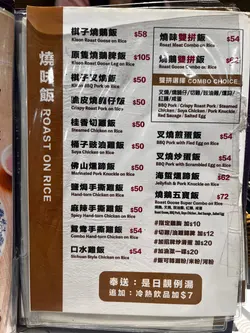 燒味飯
ROAST ON RICE
棋子燒鵝飯 $58
Kison Roast Goose on Rice
原隻燒鵝髀飯 $105
Kison Roast Goose Leg on Rice
棋子叉燒飯 $50
Kison BBQ Pork on Rice
Crispy Roast Pork on Rice
桂香切雞飯 $50
Steamed Chicken on Rice
橘子豉油雞飯 $50
Soya Chicken on Rice
佛山燻蹄飯 $50
Marinated Pork Knuckle on Rice
鹽燒手撕雞飯 $50
Hand-torn Chicken on Rice
麻辣手撕雞飯 $50
Spicy Hand-torn Chicken on Rice
鴛鴦手撕雞飯 $54
Combo Hand-torn Chicken on Rice
口水雞飯 $54
Sichuan Style Chicken on Rice
燒味雙拼飯 $54
Roast Meat Combo on Rice
燒鵝雙拼飯 $62
Roast Goose Combo on Rice
雙拼選擇 COMBO CHOICE
BBQ Pork / Crispy Roast Pork / Steamed Chicken / Pork Knuckle
Red Sausage / Salted Egg
叉燒煎蛋飯 $54
BBQ Pork with Fried Egg on Rice
叉燒炒蛋飯 $54
BBQ Pork with Scrambled Egg on Rice
海蜇燻蹄飯 $62
Jellyfish & Pork Knuckle on Rice
燒鵝五寶飯 $72
Roast Goose Super Combo on Rice
奉送：是日靚例湯
追加：冷熱飲品加$7